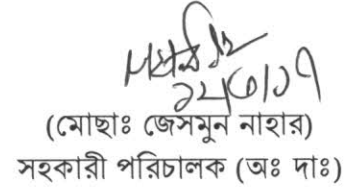 ১২/৩/১৭
(মোছাঃ জেসমুন নাহার)
সহকারী পরিচালক (অঃ দাঃ)